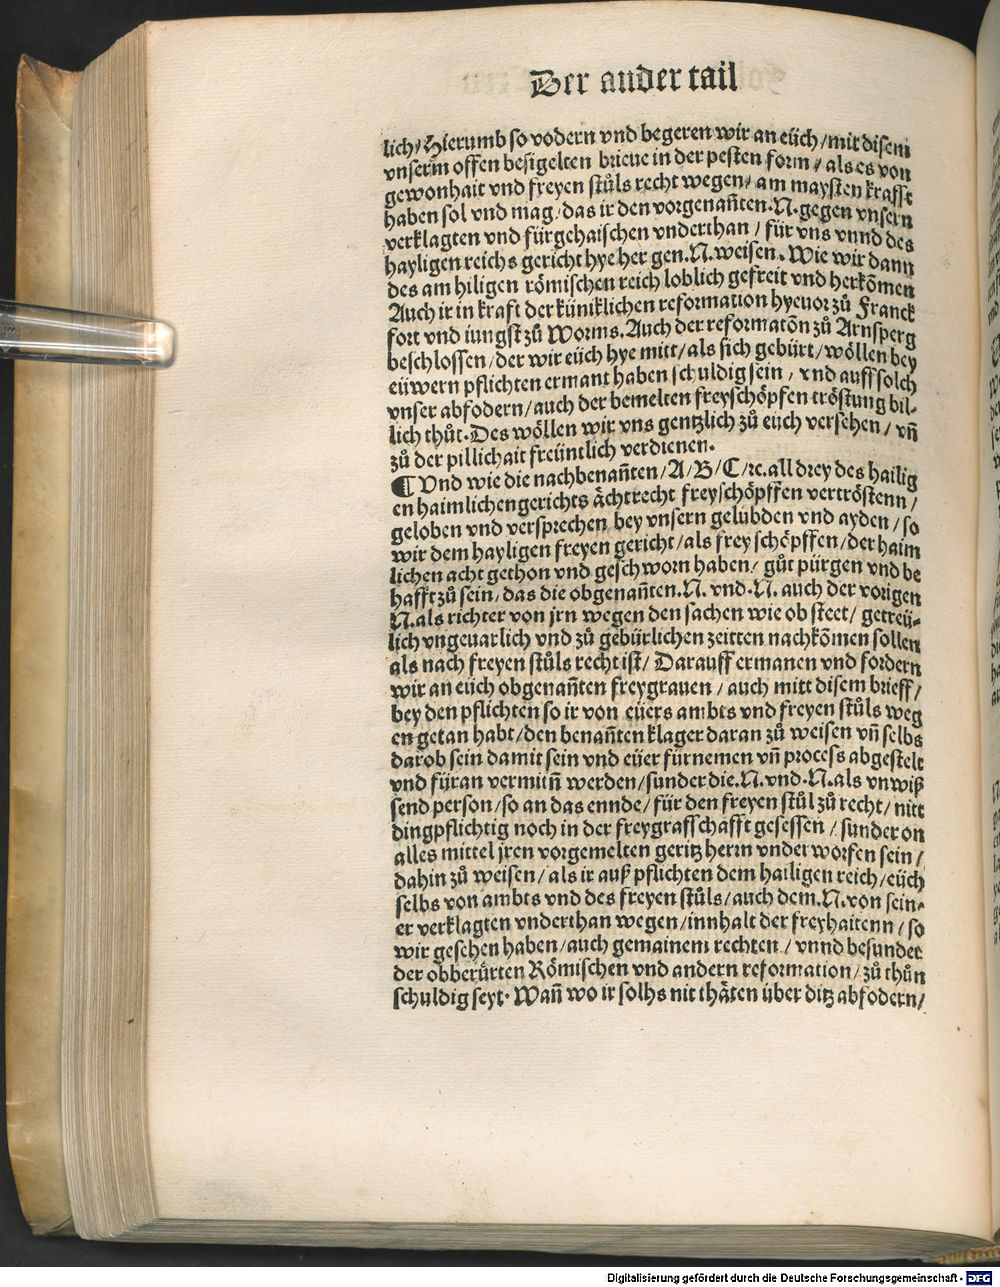 Der ander tail
lich/ Hierumb so vodern vnd begeren wir an eüch/mit disem
vnserm offen besigelten brieue in der pesten form/ als es von
gewonhait vnd freyen stůls recht wegen/ am maysten krafft
haben sol vnd mag/das ir den vorgenañten.N.gegen vnsern
verklagten vnd fürgehaischen vnderthan/ für vns vnnd des
hayligen reichs gericht hye her gen.N.weisen. Wie wir dann
des am hiligen römischen reich loblich gefreit vnd herkõmen
Auch ir in kraft der küniklichen reformation hyeuor zů Franck
fort vnd iungst zů Worms.Auch der reformatõn zů Arnsperg
beschlossen/der wir eüch hye mitt/als sich gebürt/wöllen bey
eüwern pflichten ermant haben schuldig sein/ vnd auff solch
vnser abfodern/auch der bemelten freyschöpfen tröstung bil-
lich thůt.Des wöllen wir vns gentzlich zů eüch versehen/ vñ
zů der pillichait freüntlich verdienen.
¶ Vnd wie die nachbenañten/A/B/C/ꝛc.all drey des hailig
en haimlichen gerichts ächtrecht freyschöpffen vertröstenn/
geloben vnd versprechen bey vnsern gelübden vnd ayden/so
wir dem hayligen freyen gericht/als frey schöpffen/der haim
lichen acht gethon vnd geschworn haben/ gůt pürgen vnd be
hafft zů sein/das die obgenañten.N. vnd.N. auch der vorigen
N.als richter von jrn wegen den sachen wie ob steet/ getreü-
lich vngeuarlich vnd zů gebürlichen zeitten nachkõmen sollen
als nach freyen stůls recht ist/ Darauff ermanen vnd fordern
wir an eüch obgenañten freygrauen/auch mitt disem brieff/
bey den pflichten so ir von eüers ambts vnd freyen stůls weg
en getan habt/den benañten klager daran zů weisen vñ selbs
darob sein damit sein vnd eüer fürnemen vñ process abgestelt
vnd füran vermitñ werden/sunder die.N.vnd.N.als vnwiß
send person/so an das ennde/für den freyen stůl zů recht/nitt
dingpflichtig noch in der freygrafschafft gesessen/ sunder on
alles mittel jren vorgemelten geritz herrn vnderworfen sein/
dahin zů weisen/als ir auß pflichten dem hailigen reich/eüch
selbs von ambts vnd des freyen stůls/auch dem.N.von sein-
er verklagten vnderthan wegen/innhalt der freyhaitenn/so
wir gesehen haben/auch gemainem rechten/ vnnd besunder
der obberürten Römischen vnd andern reformation/zů thůn
schuldig seyt. Wañ wo ir solhs nit thäten über ditz abfodern/
Digitalisierung gefördert durch die Deutsche Forschungsgemeinschaft - DFG